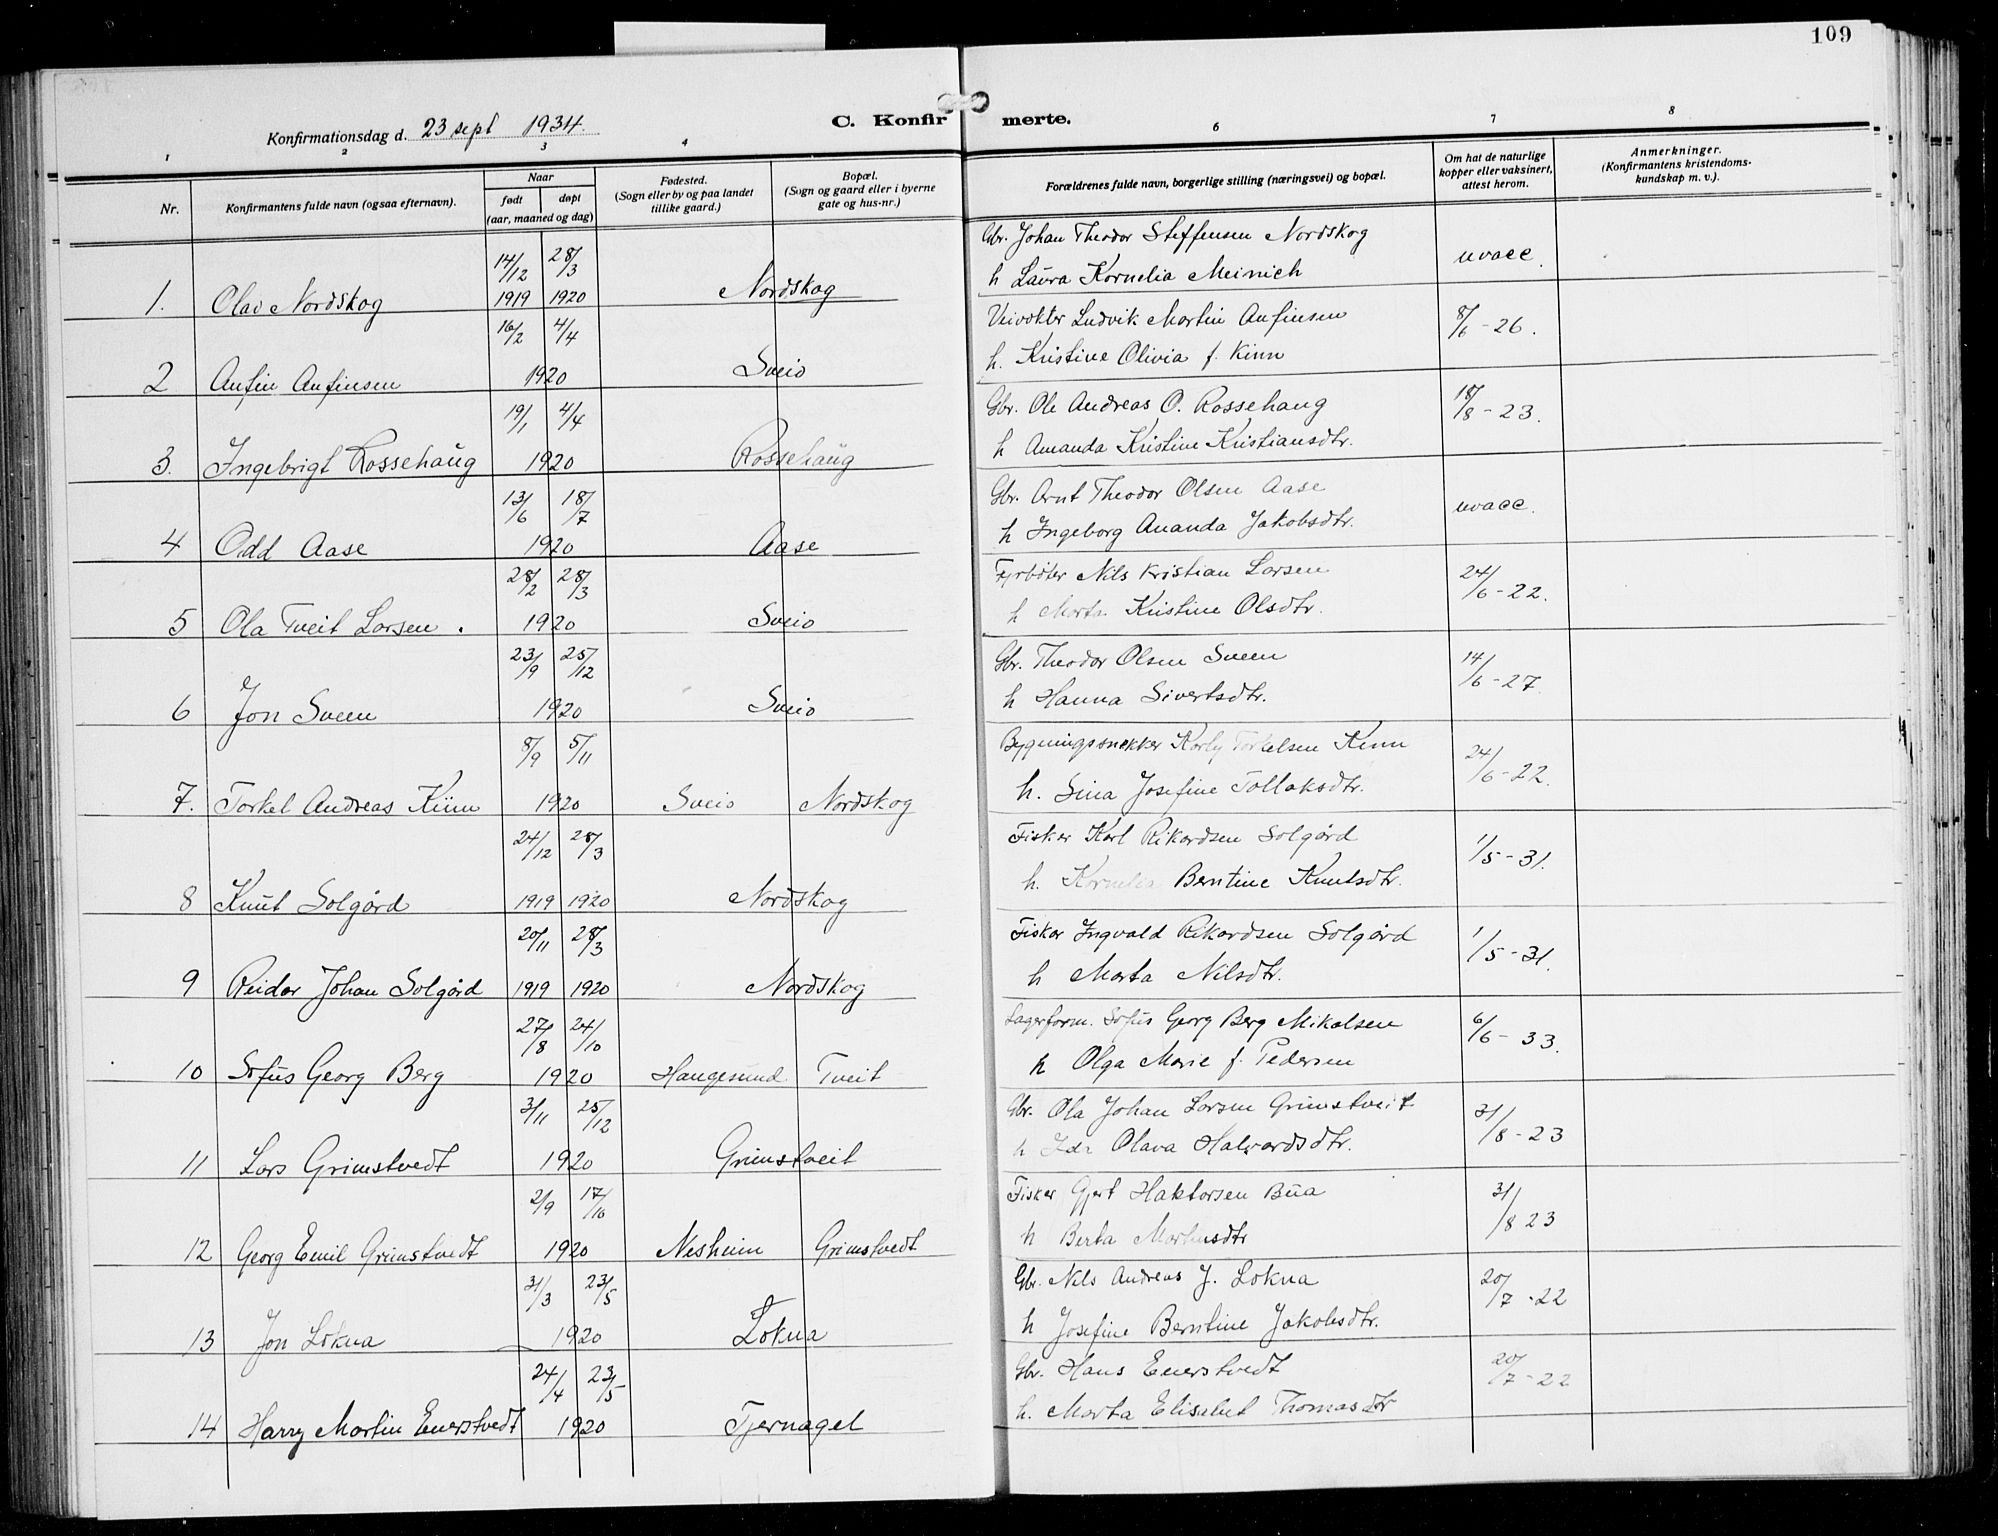 109
Konfirmationsdag d. 23 sept 1934.
C. Konfirmerte.
1 2 3 4 6 7 8
Nr.
Konfirmantens fulde navn (ogsaa efternavn).
Naar
født døpt
(aar, maaned og dag)
Fødested.
(Sogn eller by og paa landet
tillike gaard.)
Bopæl.
(Sogn og gaard eller i byerne
gate og hus-nr.)
Forældrenes fulde navn, borgerlige stilling (næringsvei) og bopæl.
Om hat de naturlige
kopper eller vaksinert,
attest herom.
Anmerkninger.
(Konfirmantens kristendoms-
kundskap m. v.).
14/12 28/3 Gbr. Johan Theodor Steffensen Nordskog uvacc.
1. Olav Nordskog 1919 1920 Nordskog h Laura Kornelia Meinich
16/2 4/4 Veivokter Ludvik Martin Anfinsen 8/6-26.
2 Anfin Anfinsen 1920 Sveio h. Kristine Olivia f. Kinn
19/1 4/4 Gbr. Ole Andreas O. Rossehaug 18/8-23.
3. Ingebrigt Rossehaug 1920 Rossehaug h Amanda Kristine Kristiansdtr.
13/6 18/7 Gbr. Arnt Theodor Olsen Aase uvacc.
4 Odd Aase 1920 Aase h Ingeborg Amanda Jakobsdtr.
28/2 28/3 Fyrbøter Nils Kristian Larsen 24/6-22.
5 Ola Tveit Larsen. 1920 Sveio h Marta Kristine Olsdtr.
23/9 25/12 Gbr. Theodor Olsen Sveen 14/6-27
6 Jon Sveen 1920 Sveio h Hanna Sivertsdtr.
8/9 5/11 Bygningssnekker Torkelsen Kinn 24/6-22.
7. Torkel Andreas Kinn 1920 Sveio Nordskog h. Sina Josefine Tollaksdtr.
24/12 28/3 Fisker Karl Rikardsen Solgård 1/5-31.
8 Knut Solgård 1919 1920 Nordskog h. Kornelia Berntine Knutsdtr.
20/11 28/3 Fisker Ingvald Rikardsen Solgård 1/5-31.
9 Reidar Johan Solgård 1919 1920 Nordskog h Marta Nilsdtr.
27/8 24/10 Lagerform. Sofus Georg Berg Mikalsen 6/6-33.
10 Sofus Georg Berg 1920 Haugesund Tveit h Olga Marie f. Pedersen
3/11 25/12 Gbr. Ola Johan Larsen Grimstveit 31/8-23
11 Lars Grimstvedt 1920 Grimstveit h Ida Olava Halvardsdtr.
2/9 17/10 Fisker Gjert Haktorsen Bua 31/8 23
12 Georg Emil Grimstvedt 1920 Nesheim Grimstvedt h Berta Markusdtr
31/3 23/5 Gbr. Nils Andreas J. Lokna 20/7-22
13 Jon Lokna 1920 Lokna h Josefine Berntine Jakobsdtr.
24/4 23/5 Gbr. Hans Euerstvedt 20/7-22
14 Harry Martin Euerstvedt 1920 Tjernagel h. Marta Elisabet Thomasdtr